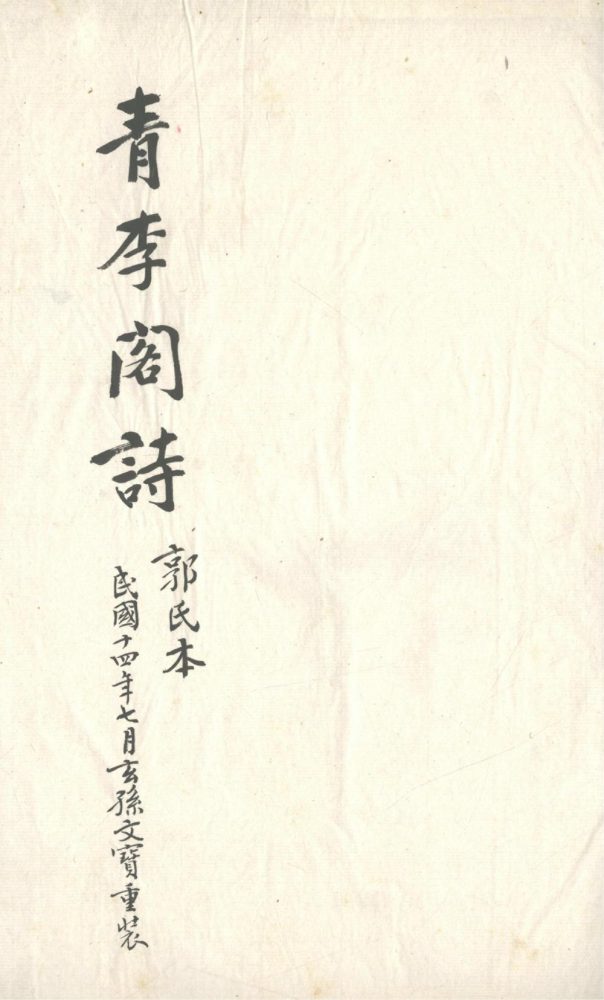 青李閣詩
郭氏本
民國十四年七月玄孫文寶重裝